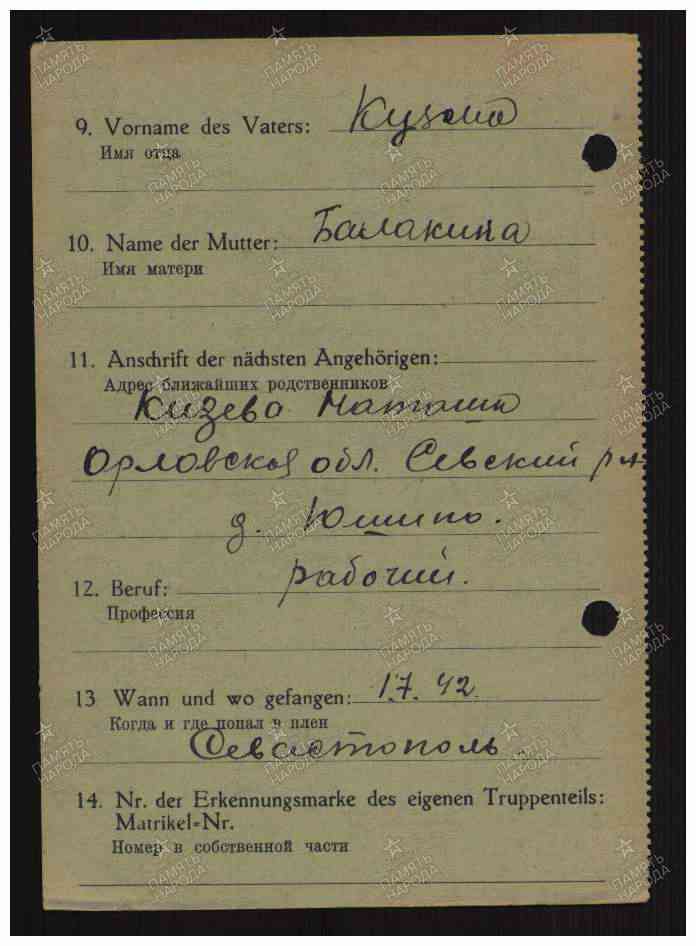 9. Vorname des Vaters: Кузьма
Имя отца
10. Name der Mutter: Балакина
Имя матери
11. Anschrift der nächsten Angehörigen:
Адрес ближайших родственников
Кизева Наташа
Орловская обл. Севский р-н
д. Юшино.
12. Beruf: рабочий.
Профессия
13 Wann und wo gefangen: 1.7.42.
Когда и где попал в плен
Севастополь
14. Nr. der Erkennungsmarke des eigenen Truppenteils:
Matrikel-Nr.
Номер в собственной части
ПАМЯТЬ НАРОДА